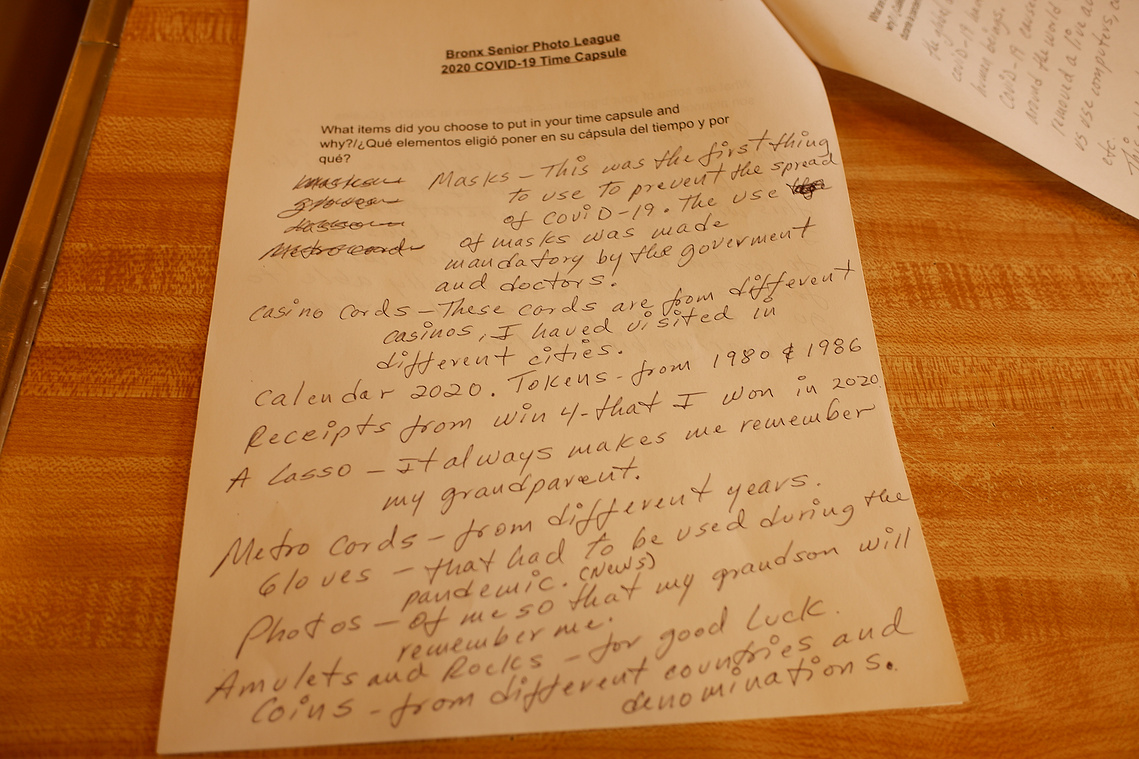 Bronx Senior Photo League
2020 COVID-19 Time Capsule
What items did you choose to put in your time capsule and
why?/¿Qué elementos eligió poner en su cápsula del tiempo y por
qué?
Masks - This was the first thing
to use to prevent the spread
of COVID-19. The use
of masks was made
mandatory by the goverment
and doctors.
Metrocards
Casino Cards - These cards are from different
casinos, I haved visited in
different cities.
Calendar 2020. Tokens - from 1980 & 1986
Receipts from win 4 - that I won in 2020
A Lasso - It always makes me remember
my grandparent.
Metro Cards - from different years.
Gloves - that had to be used during the
pandemic. (News)
Photos - Of me so that my grandson will
remember me.
Amulets and Rocks - for good Luck.
Coins - from different countries and
denominations.
covid-19
human beings.
Covid-19 cause
around the world
removed a live
us use computers,
etc.